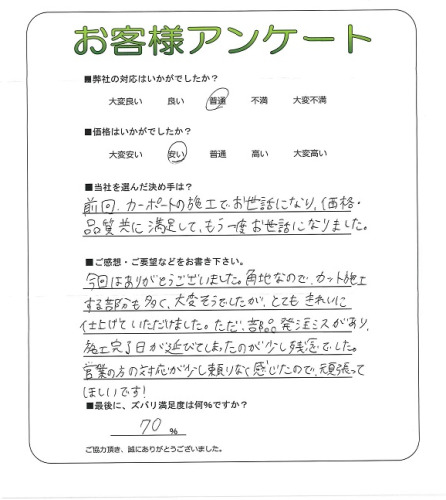 お客様アンケート
■弊社の対応はいかがでしたか？
大変良い　良い　普通　不満　大変不満
■価格はいかがでしたか？
大変安い　安い　普通　高い　大変高い
■当社を選んだ決め手は？
前回、カーポートの施工でお世話になり、価格・
品質共に満足して、もう一度お世話になりました。
■ご感想・ご要望などをお書き下さい。
今回はありがとうございました。角地なので、カット施工
する部分も多く、大変そうでしたが、とてもきれいに
仕上げていただけました。ただ、部品発注ミスがあり、
施工完了日が延びてしまったのが少し残念でした。
営業の方の対応が少し頼りなく感じたので、頑張って
ほしいです！
■最後に、ズバリ満足度は何%ですか？
70 %
ご協力頂き、誠にありがとうございました。